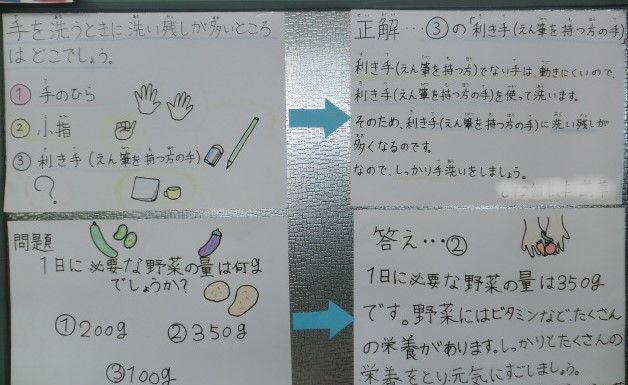 手を洗うときに洗い残しが多いところ
はどこでしょう。
① 手のひら
② 小指
③ 利き手(えん筆を持つ方の手)
?
正解…③の「利き手(えん筆を持つ方の手)
利き手(えん筆を持つ方)でない手は、動きにくいので、
利き手(えん筆を持つ方の手)を使って洗います。
そのため、利き手(えん筆を持つ方の手)に洗い残しが
多くなるのです。
なので、しっかり手洗いをしましょう。
問題
1日に必要な野菜の量は何g
でしょうか?
①200g ②350g
③100g
答え…②
1日に必要な野菜の量は350g
です。野菜にはビタミンなど、たくさん
の栄養があります。しっかりとたくさんの
栄養をとり、元気にすごしましょう。